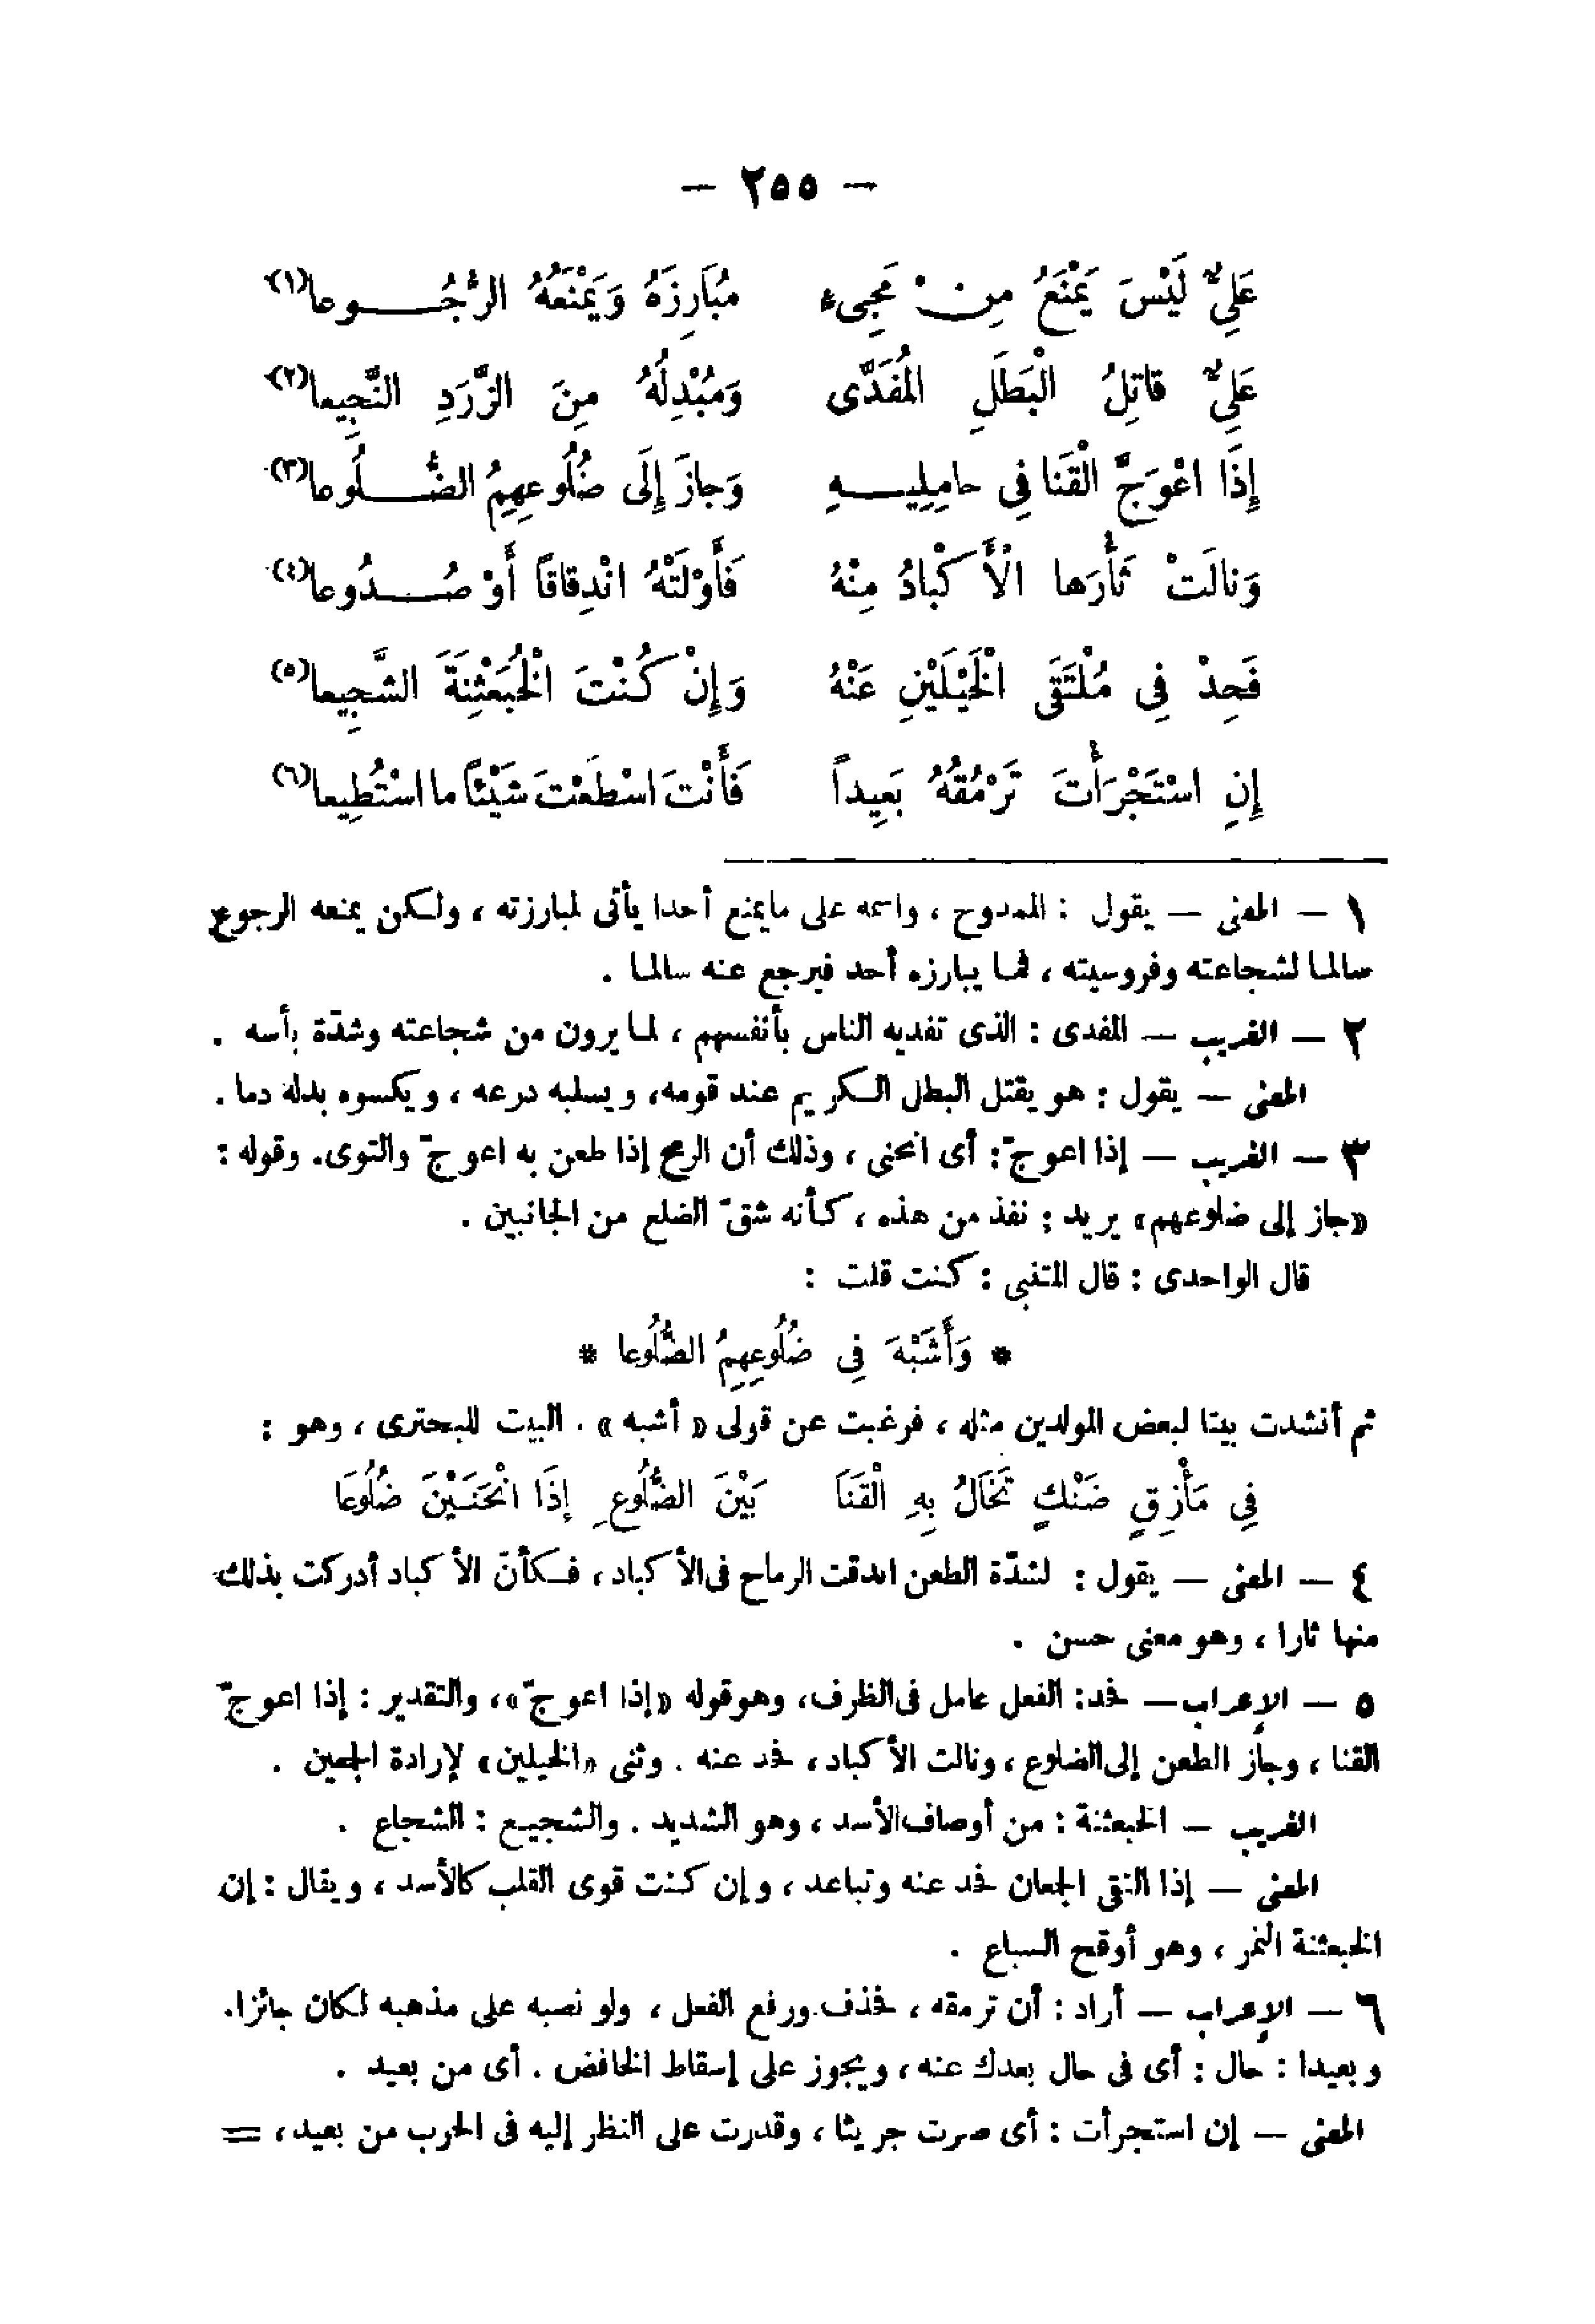 — ٢٥٥ —
عَلِيٌّ لَيْسَ يَمْنَعُ مِنْ مَجِىءٍ مُبَارِزَهُ وَيَمْنَعُهُ الرُّجُوعا(١)
عَلِيٌّ قاتِلُ الْبَطَلِ الْمُفَدَّى وَمُبْدِلُهُ مِنَ الزَّرَدِ النَّجِيعا(٢)
إِذَا اعْوَجَّ الْقَنا فِى حامِلِيهِ وَجازَ إِلَى ضُلُوعِهِمُ الضُّلُوعا(٣)
وَنالَتْ ثَأْرَها الْأَكْبادُ مِنْهُ فَأَوْلَتْهُ انْدِقاقاً أَوْ صُدُوعا(٤)
فَحِدْ فِى مُلْتَقَى الْخَيْلَيْنِ عَنْهُ وَإِنْ كُنْتَ الْخُبَعْثِنَةَ الشَّجِيعا(٥)
إِنِ اسْتَجْرَأْتَ تَرْمُقُهُ بَعِيداً فَأَنْتَ اسْطَعْتَ شَيْئاً ما اسْتُطِيعا(٦)
١ — المعنى — يقول : الممدوح ، واسمه على مايمنع أحدا يأتى لمبارزته ، ولكن يمنعه الرجوع
سالما لشجاعته وفروسيته ، فما يبارزه أحد فيرجع عنه سالما .
٢ — الغريب — المفدى : الذى تفديه الناس بأنفسهم ، لما يرون من شجاعته وشدّة بأسه .
المعنى — يقول : هو يقتل البطل الكريم عند قومه، ويسلبه درعه ، ويكسوه بدله دما .
٣ — الغريب — إذا اعوجّ : أى انحنى ، وذلك أن الرمح إذا طعن به اعوجّ والتوى. وقوله :
«جاز إلى ضلوعهم» يريد : نفذ من هذه ، كأنه شقّ الضلع من الجانبين .
قال الواحدى : قال المتنبى : كنت قلت :
* وَأَشَبْهَ فِى ضُلُوعِهِمُ الضُّلُوعا *
ثم أنشدت بيتا لبعض المولدين مثله ، فرغبت عن قولى « أشبه » . البيت للبحترى ، وهو :
فِى مَأْزِقٍ ضَنْكٍ تَخَالُ بِهِ الْقَنَا بَيْنَ الضُّلُوعِ إِذَا انْحَنَيْنَ ضُلُوعَا
٤ — المعنى — يقول : لشدّة الطعن اندقت الرماح فى الأكباد ، فكأنّ الأكباد أدركت بذلك
منها ثارا ، وهو معنى حسن .
٥ — الإعراب— فحد: الفعل عامل فى الظرف، وهوقوله «إذا اعوجّ»، والتقدير : إذا اعوجّ
القنا ، وجاز الطعن إلى الضلوع ، ونالت الأكباد ، فحد عنه . وثنى «الخيلين» لإرادة الجمعين .
الغريب — الخبعثنة : من أوصاف الأسد ، وهو الشديد . والشجيع : الشجاع .
المعنى — إذا التقى الجمعان فحد عنه وتباعد ، وإن كنت قوى القلب كالأسد ، ويقال : إن
الخبعثنة النمر ، وهو أوقح السباع .
٦ — الإعراب — أراد : أن ترمقه ، فحذف ورفع الفعل ، ولو نصبه على مذهبه لكان جائزا.
وبعيدا : حال : أى فى حال بعدك عنه ، ويجوز على إسقاط الخافض . أى من بعيد .
المعنى — إن استجرأت : أى صرت جريئا ، وقدرت على النظر إليه فى الحرب من بعيد ، =